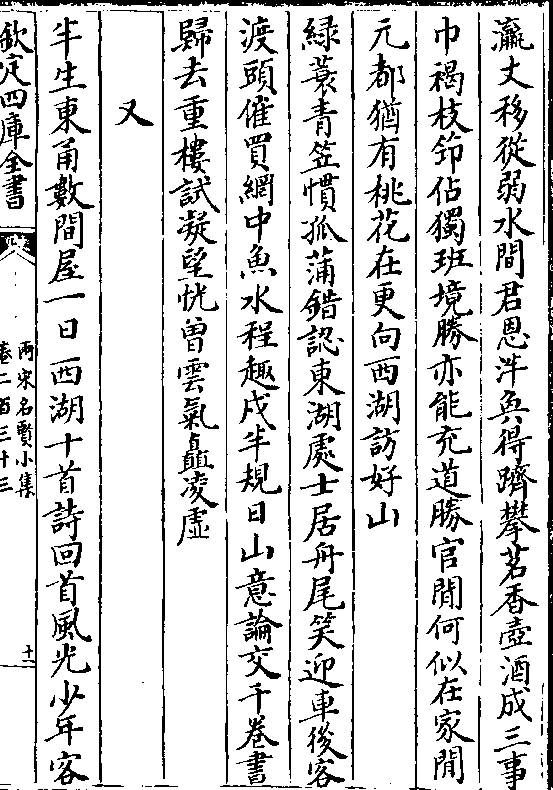 瀛丈移從弱水間君恩泮奐得躋攀茗香壺酒成三事
巾褐枝笻佔獨班境勝亦能充道勝官閒何似在家閒
元都猶有桃花在更向西湖訪好山
緑蓑青笠慣孤蒲錯認東湖處士居舟尾笑迎車後客
渡頭催買網中魚水程趣戍半規日山意論交千卷書
歸去重樓試凝望恍曾雲氣矗凌虛
又
半生東甬數間屋一日西湖十首詩回首風光少年客
欽定四庫全書
兩宋名賢小集
卷二百三十三
十一